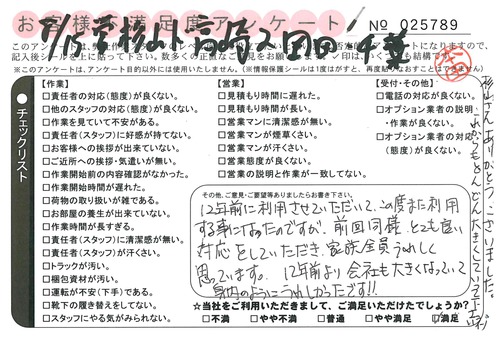 お客様不満足度アンケート
No 025789
記入後シールを上に貼って下さい。
※このアンケートは、アンケート目的以外には使用いたしません。(※情報保護シールは1度はがすと、再度貼りなおすことはできません)
チェックリスト
【作業】
□責任者の対応(態度)が良くない。
□他のスタッフの対応(態度)が良くない。
□作業を見ていて不安がある。
□責任者(スタッフ)に好感が持てない。
□お客様への挨拶が出来ていない。
□ご近所への挨拶・気遣いが無い。
□作業開始前の内容確認がなかった。
□作業開始時間が遅れた。
□荷物の取り扱いが雑である。
□お部屋の養生が出来ていない。
□作業時間が長すぎる。
□責任者(スタッフ)に清潔感が無い。
□責任者(スタッフ)が汗くさい。
□トラックが汚い。
□梱包資材が汚い。
□運転が不安(下手)である。
□靴下の履き替えをしてない。
□スタッフにやる気がみられない。
【営業】
□見積もり時間に遅れた。
□見積もり時間が長い。
□営業マンに清潔感が無い。
□営業マンが煙草くさい。
□営業マンが汗くさい。
□営業態度が良くない。
□営業の説明と作業が一致してない。
【受付・その他】
□電話の対応が良くない。
□オプション業者の説明
・作業が良くない。
□オプション業者の対応
(態度)が良くない。
その他、ご意見・ご要望等ありましたらお書き下さい。
12年前に利用させていただいて、この度また利用
する事になったのですが、前回同様、とても良い
対応をしていただき、家族全員うれしく
思っています。12年前より会社も大きくなっていて
身内のようにうれしかったです!!
杉山さん ありがとうございました。
これからもどんどん大きくしていって
☆当社をご利用いただきまして、ご満足いただけたでしょうか?
□不満 □やや不満 □普通 □やや満足 ☑満足